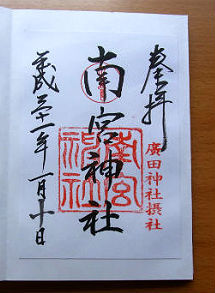 奉拝
廣田神社摂社
南宮神社
南宮神社
平成二十一年一月十日